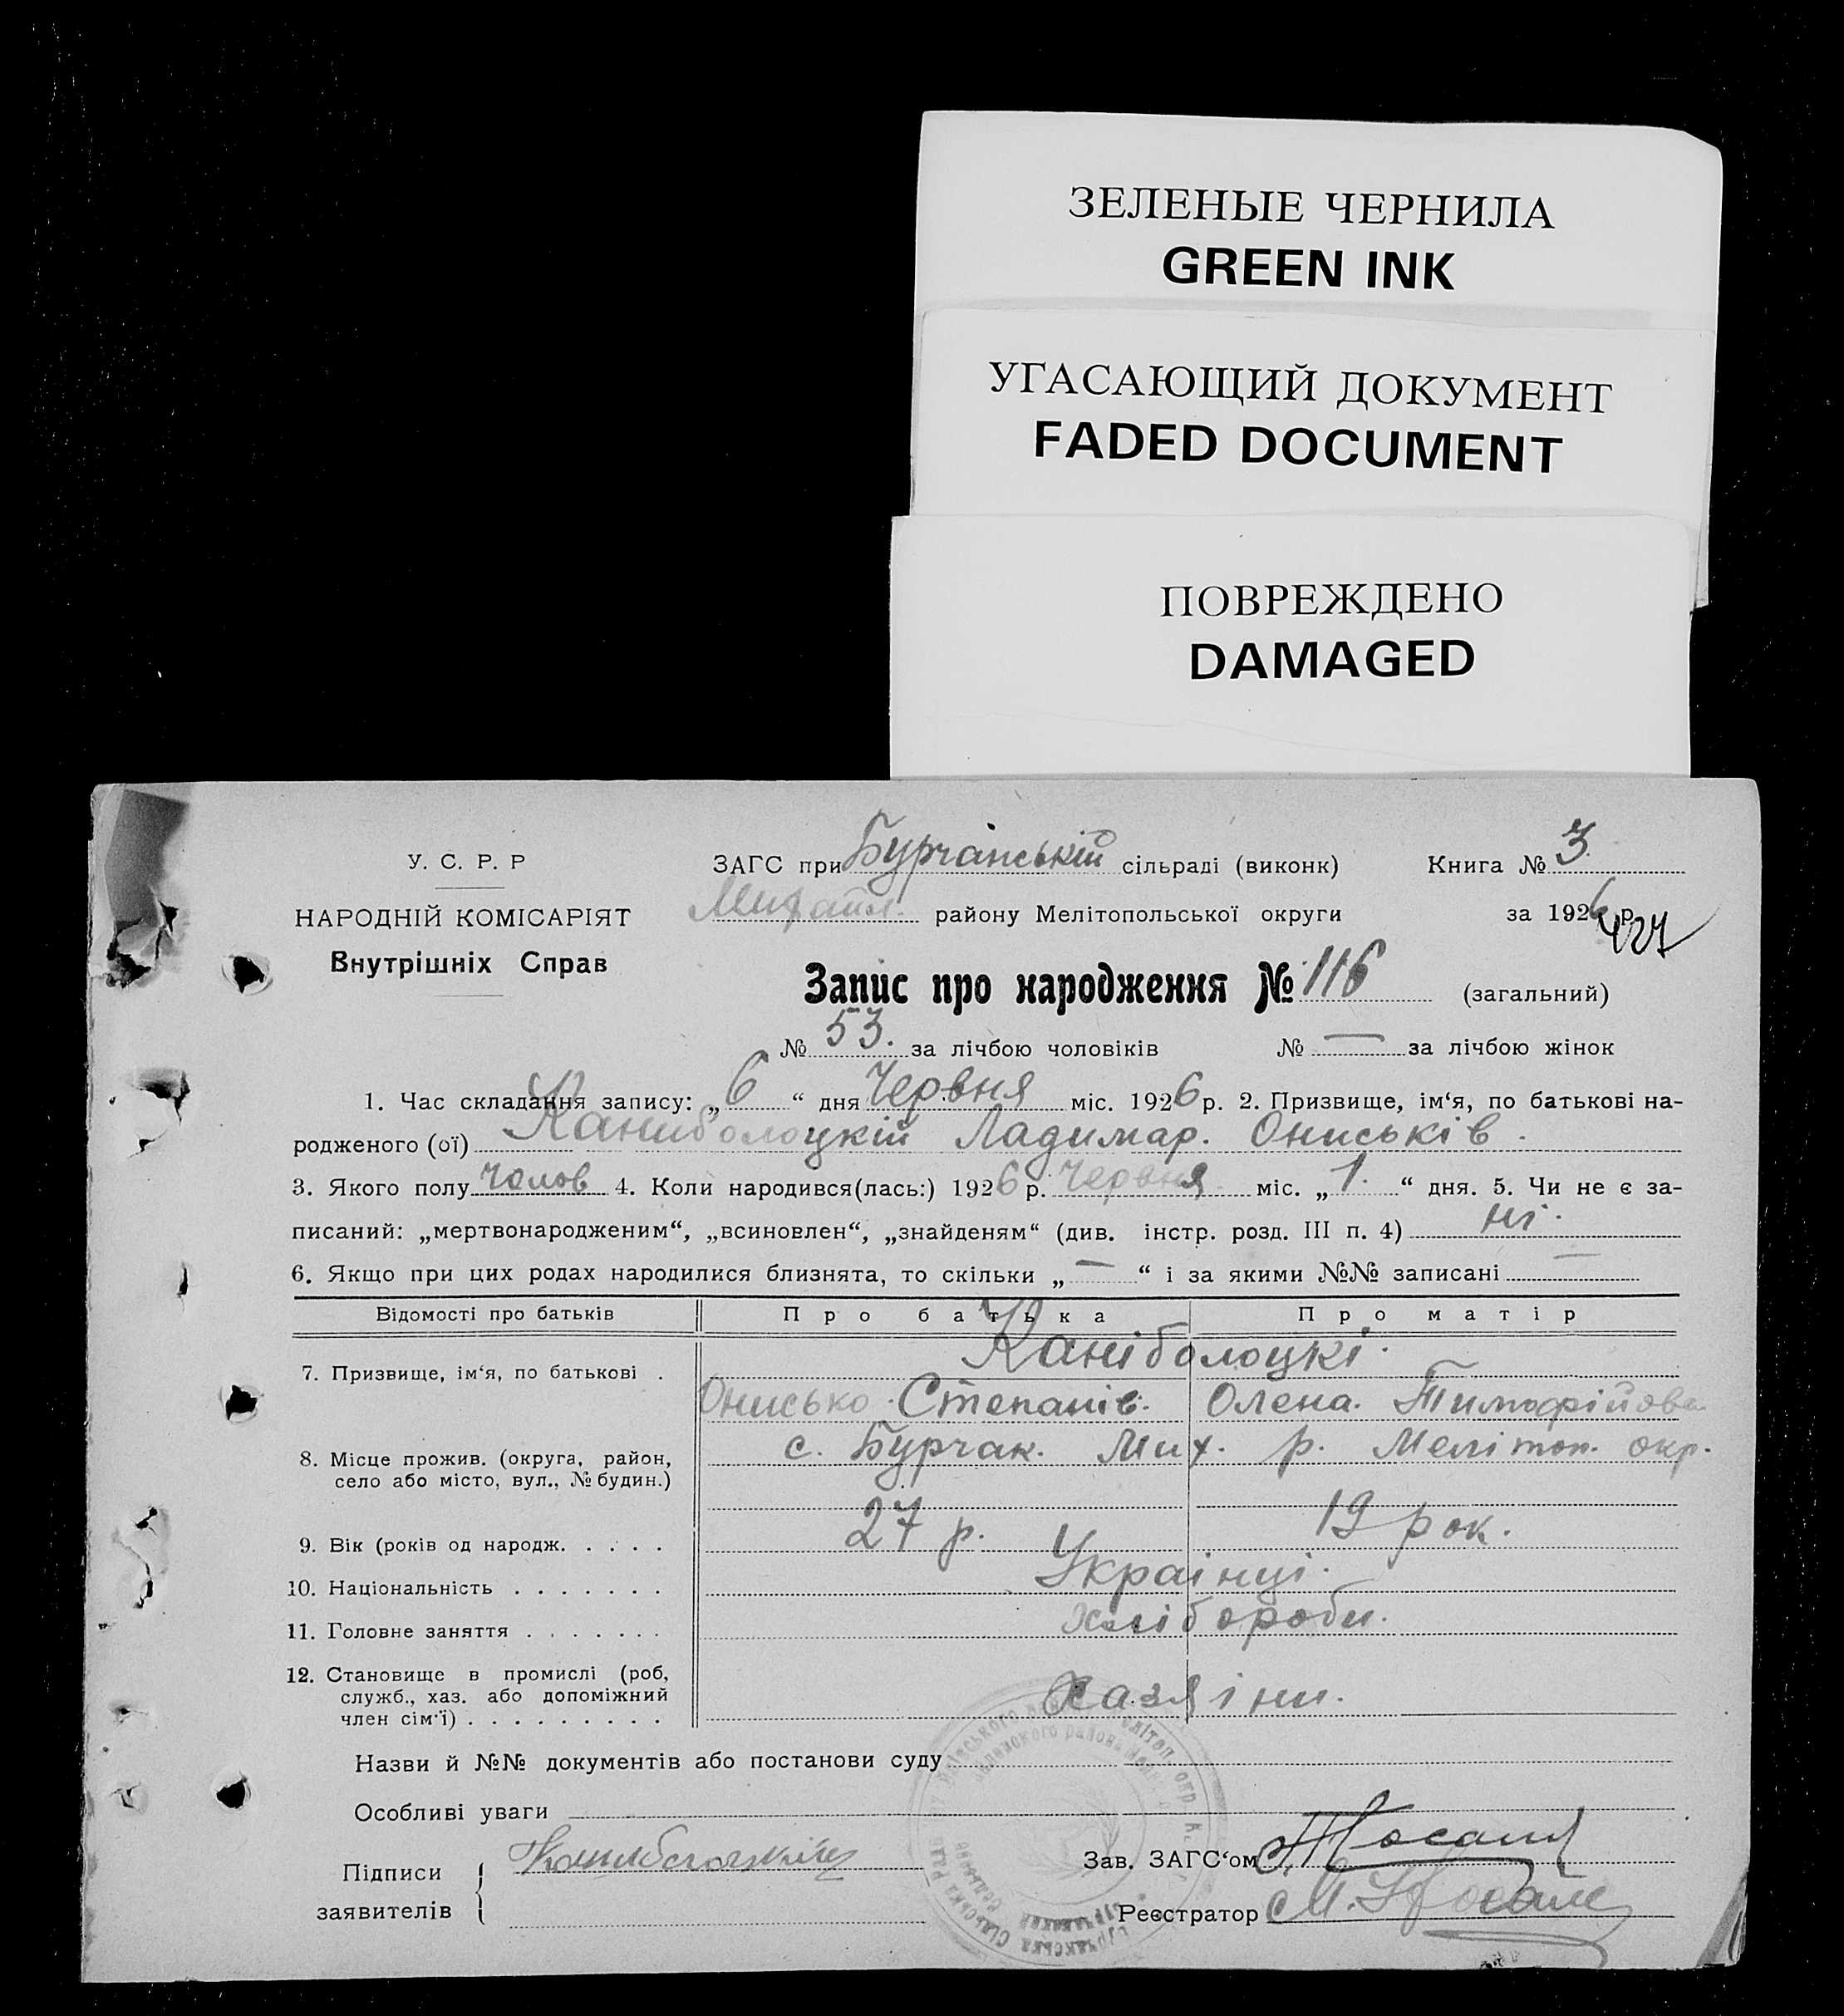 ЗЕЛЕНЫЕ ЧЕРНИЛА
GREEN INK
УГАСАЮЩИЙ ДОКУМЕНТ
FADED DOCUMENT
ПОВРЕЖДЕНО
DAMAGED
У. С. Р. Р
НАРОДНІЙ КОМІСАРІЯТ
Внутрішніх Справ
ЗАГС при Бурчанській сільраді (виконк) Книга № 3.
Михайл. району Мелітопольської округи за 1926 р.
427
Запис про народження № 116 (загальний)
№ 53. за лічбою чоловіків № — за лічбою жінок
1. Час складання запису: „6“ дня Червня міс. 1926 р. 2. Призвище, ім‘я, по батькові на-
родженого (ої) Каниболоцкій Ладимар. Ониськів.
3. Якого полу чолов 4. Коли народився(лась:) 1926 р. Червня міс. „1.“ дня. 5. Чи не є за-
писаний: „мертвонародженим“, „всиновлен“, „знайденям“ (див. інстр. розд. III п. 4) ні.
6. Якщо при цих родах народилися близнята, то скільки „—“ і за якими №№ записані —
Відомості про батьків Про батька Про матір
7. Призвище, ім‘я, по батькові . Каніболоцкі.
Онисько Степанів. Олена. Тимофійова
8. Місце прожив. (округа, район, с. Бурчак. Мих. р. Мелітоп. окр.
село або місто, вул., № будин.)
9. Вік (років од народж. . . . . 27 р. 19 рок.
10. Національність . . . . . . . Українці.
11. Головне заняття . . . . . . . хлібороби.
12. Становище в промислі (роб,
служб., хаз. або допоміжний Хазяіни.
член сім‘ї) . . . . . . . . .
Назви й №№ документів або постанови суду
Особливі уваги
Підписи
заявителів
Зав. ЗАГС‘ом
Реєстратор